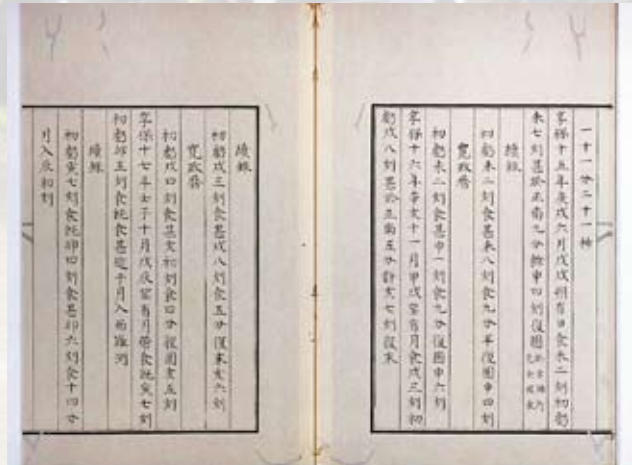 一十一分二十一秒
享保十五年庚戌六月戊戌朔有日食未二刻初虧
未七刻甚於正南九分餘申四刻復圓
續録
初虧未二刻食甚未八刻食九分半復圓申四刻
寛政暦
初虧未二刻食甚申一刻食九分復圓申六刻
享保十六年辛亥十一月甲戌望有月食戌三刻初
虧戌八刻甚於正南五分許亥七刻復末
續録
初虧戌三刻食甚戌八刻食五分復末亥六刻
寛政暦
初虧戌四刻食甚亥初刻食四分復圓亥五刻
享保十七年壬子十月戊辰望有月帶食既寅七刻
初虧卯五刻食既食甚

月入

續録
初虧寅七刻食既卯四刻食甚卯六刻食十四分
月入辰初刻